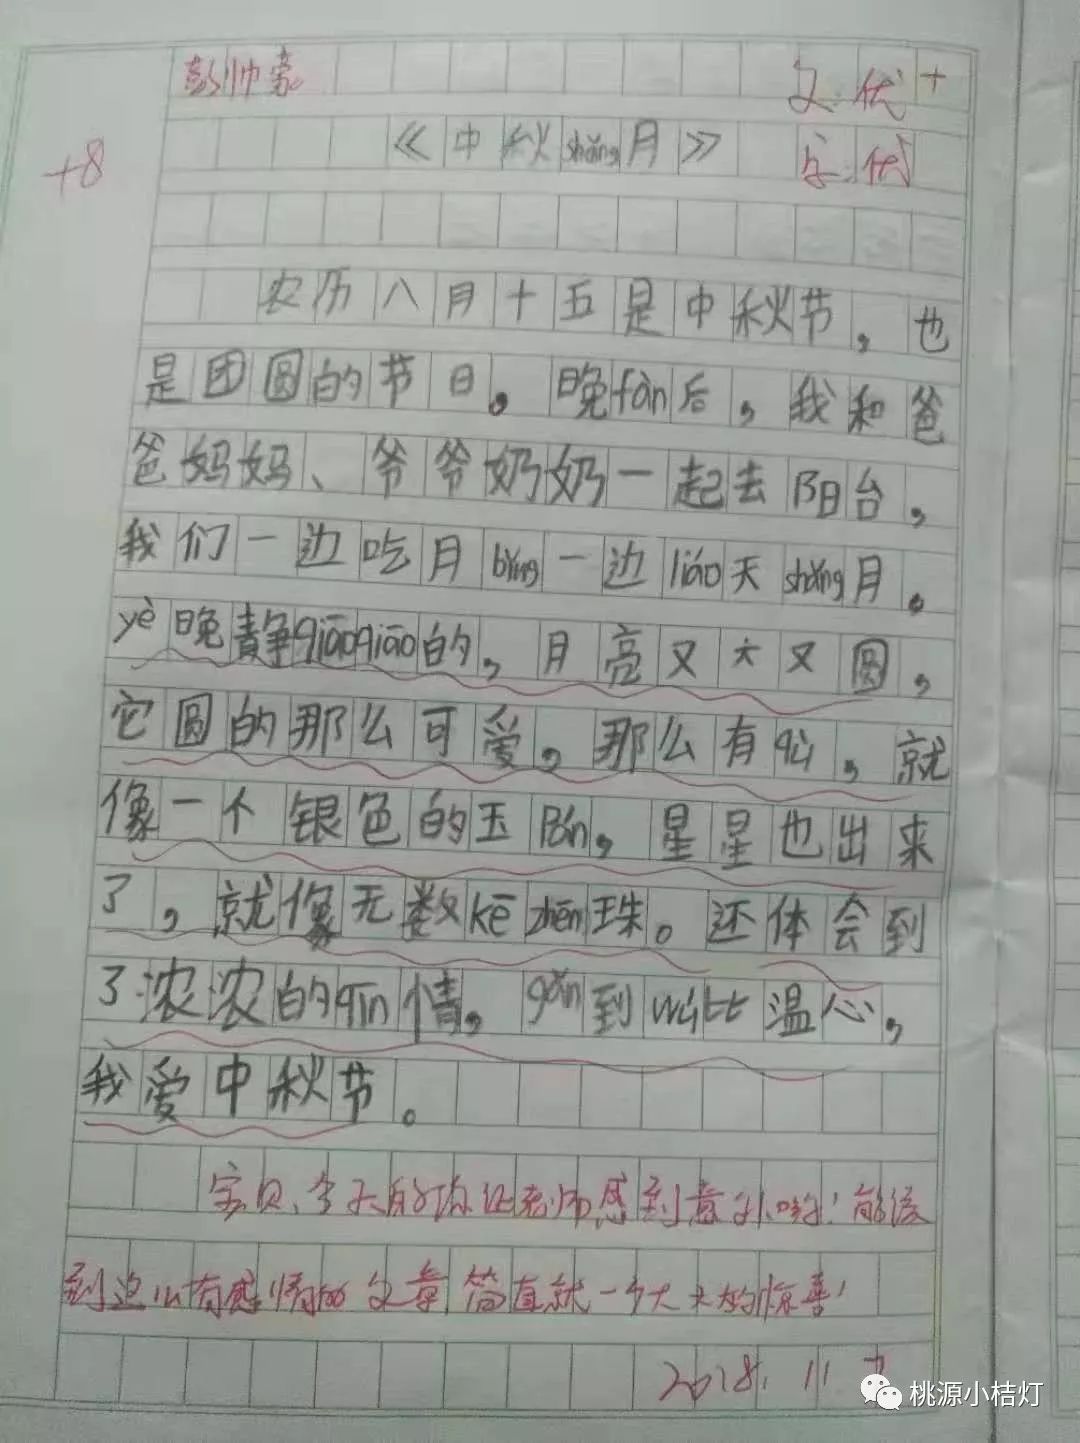 彭帅豪
文:优+
《中秋shǎng月》
字:优
+8
农历八月十五是中秋节，也
是团圆的节日。晚fàn后，我和爸
爸妈妈、爷爷奶奶一起去阳台，
我们一边吃月bǐng一边liáo天shǎng月。
yè晚静qiāoqiāo的，月亮又大又圆，
它圆的那么可爱。那么有qù，就
像一个银色的玉Pán。星星也出来
了，就像无数kē zhēn珠。还体会到
了浓浓的qīn情。gǎn到wú比温心，
我爱中秋节。
宝贝、今天的你让老师感到意外哟!能读
到这么有感情的文章简直就一个大大的惊喜!
2018. 11
桃源小桔灯